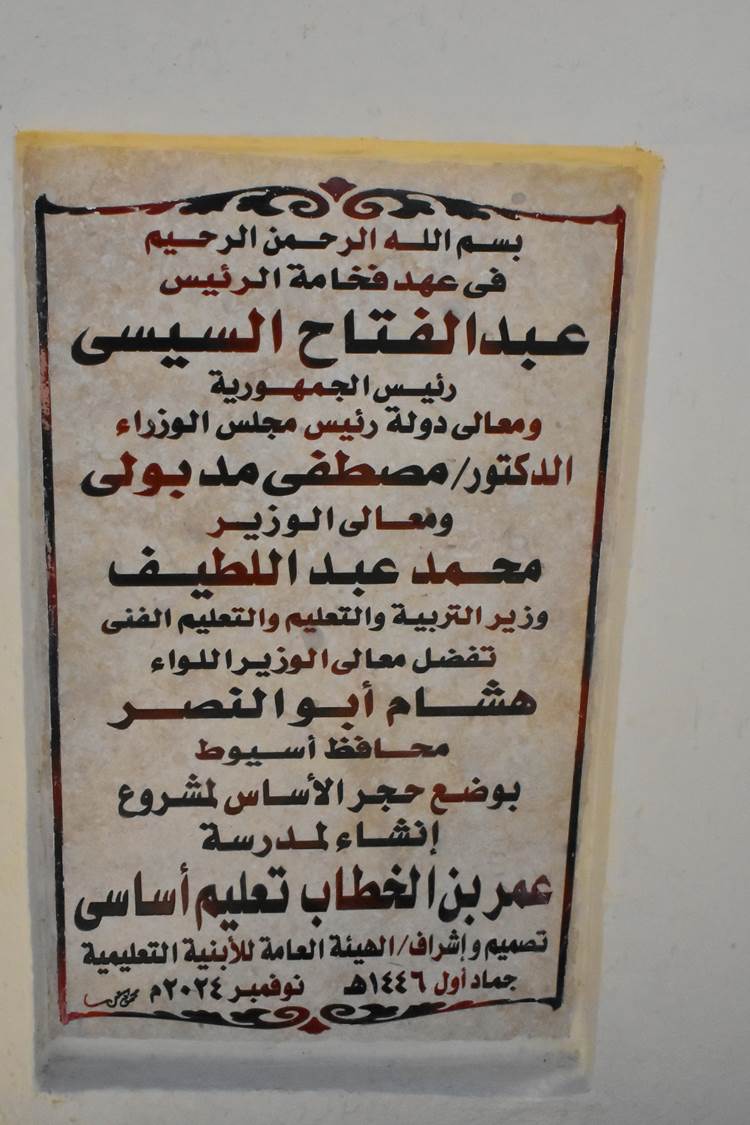 بسم الله الرحمن الرحيم
فى عهد فخامة الرئيس
عبدالفتاح السيسى
رئيس الجمهورية
ومعالى دولة رئيس مجلس الوزراء
الدكتور/ مصطفى مدبولى
ومعالى الوزير
محمد عبد اللطيف
وزير التربية والتعليم والتعليم الفنى
تفضل معالى الوزير اللواء
هشام أبو النصر
محافظ أسيوط
بوضع حجر الأساس لمشروع
إنشاء لمدرسة
عمر بن الخطاب تعليم أساسى
تصميم وإشراف/ الهيئة العامة للأبنية التعليمية
جماد أول ١٤٤٦هـ نوفمبر ٢٠٢٤م